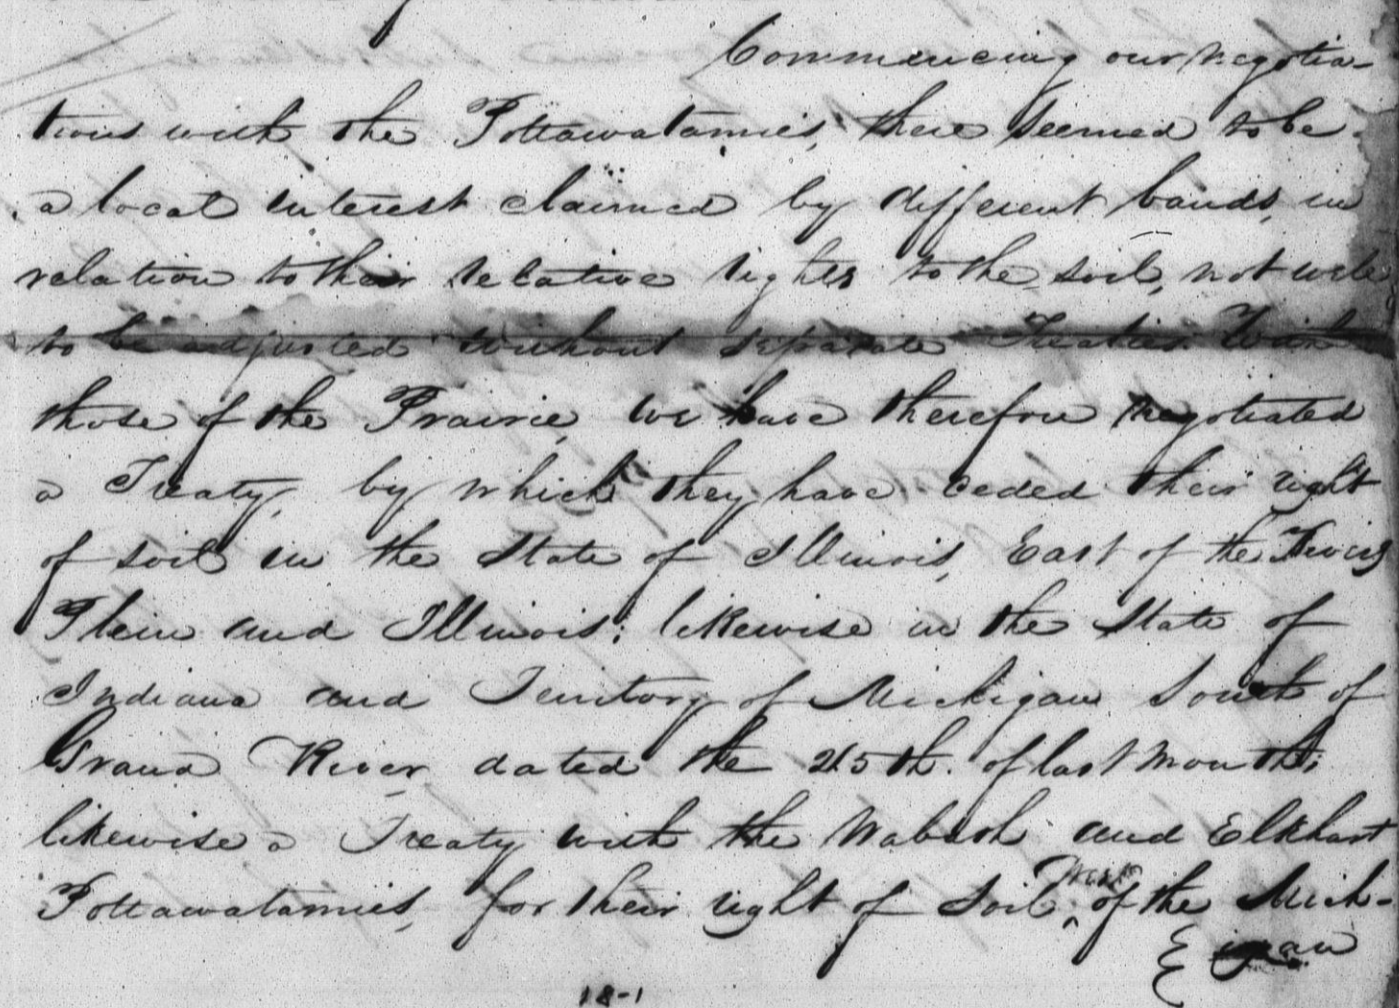 Commencing our negotia-
tions with the Pottawatamies, there seemed to be
a local interest claimed by different bands, in
relation to their relative rights to the soil, not well
to be adjusted without separate Treaties. With
those of the Prairie, we have therefore negotiated
a Treaty, by which they have ceded their right
of soil in the State of Illinois, East of the
Plein and Illinois; likewise in the State of
Indiana and Territory of Michigan South of
Grand River dated the 20th. of last month;
likewise a Treaty with the Wabash and Elkhart
Pottawatamies, for their right of Soil, West of the Mich-
igan
18-1